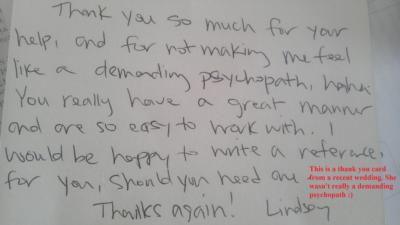 Thank you so much for your
help, and for not making me feel
like a demanding psychopath, haha.
You really have a great manner
and are so easy to work with. I
would be happy to write a reference,
for you, should you need one
Thanks again! Lindsey
This is a thank you card
from a recent wedding. She
wasn't really a demanding
psychopath :)